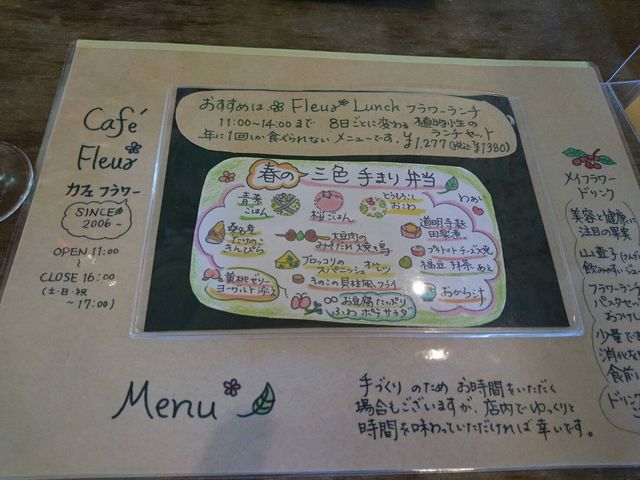 Café
Fleur
カフェ フラワー
SINCE
2006~
OPEN 11:00
~
CLOSE 16:00
(土・日・祝
~17:00)
おすすめは、Fleur Lunch フラワーランチ
11:00~14:00まで 8日ごとに変わる 植物性の
ランチセット
年に1回しか食べられない メニューです。¥1,277(税込¥1380)
春の 三色 手まり 弁当
青菜
ごはん
桜ごはん
とうもろこし
おこわ
わぉ
桑の木
たけのこ
きんぴら
大豆肉の
みそだれ 焼き鳥
道明寺麩
田楽煮
ブロッコリの
スパニッシュ オムレツ
プチトマト チーズ焼
福豆 抹茶 あえ
黄桃ゼリー
ヨーグルト 添え
きのこの 貝柱風 フライ
おから汁
お豆腐たっぷり
ふわ ポテサラダ
Menu
手づくり のため お時間をいただく
場合もございますが、店内でゆっくりと
時間を味わっていただければ 幸いです。
メイフラワー
ドリンク
美容と健康
注目の果実
山査子(さんざ
飲みやすい
フラワーランチ
パスタセッ
おつけし
少量で
消化を
食前
ドリン